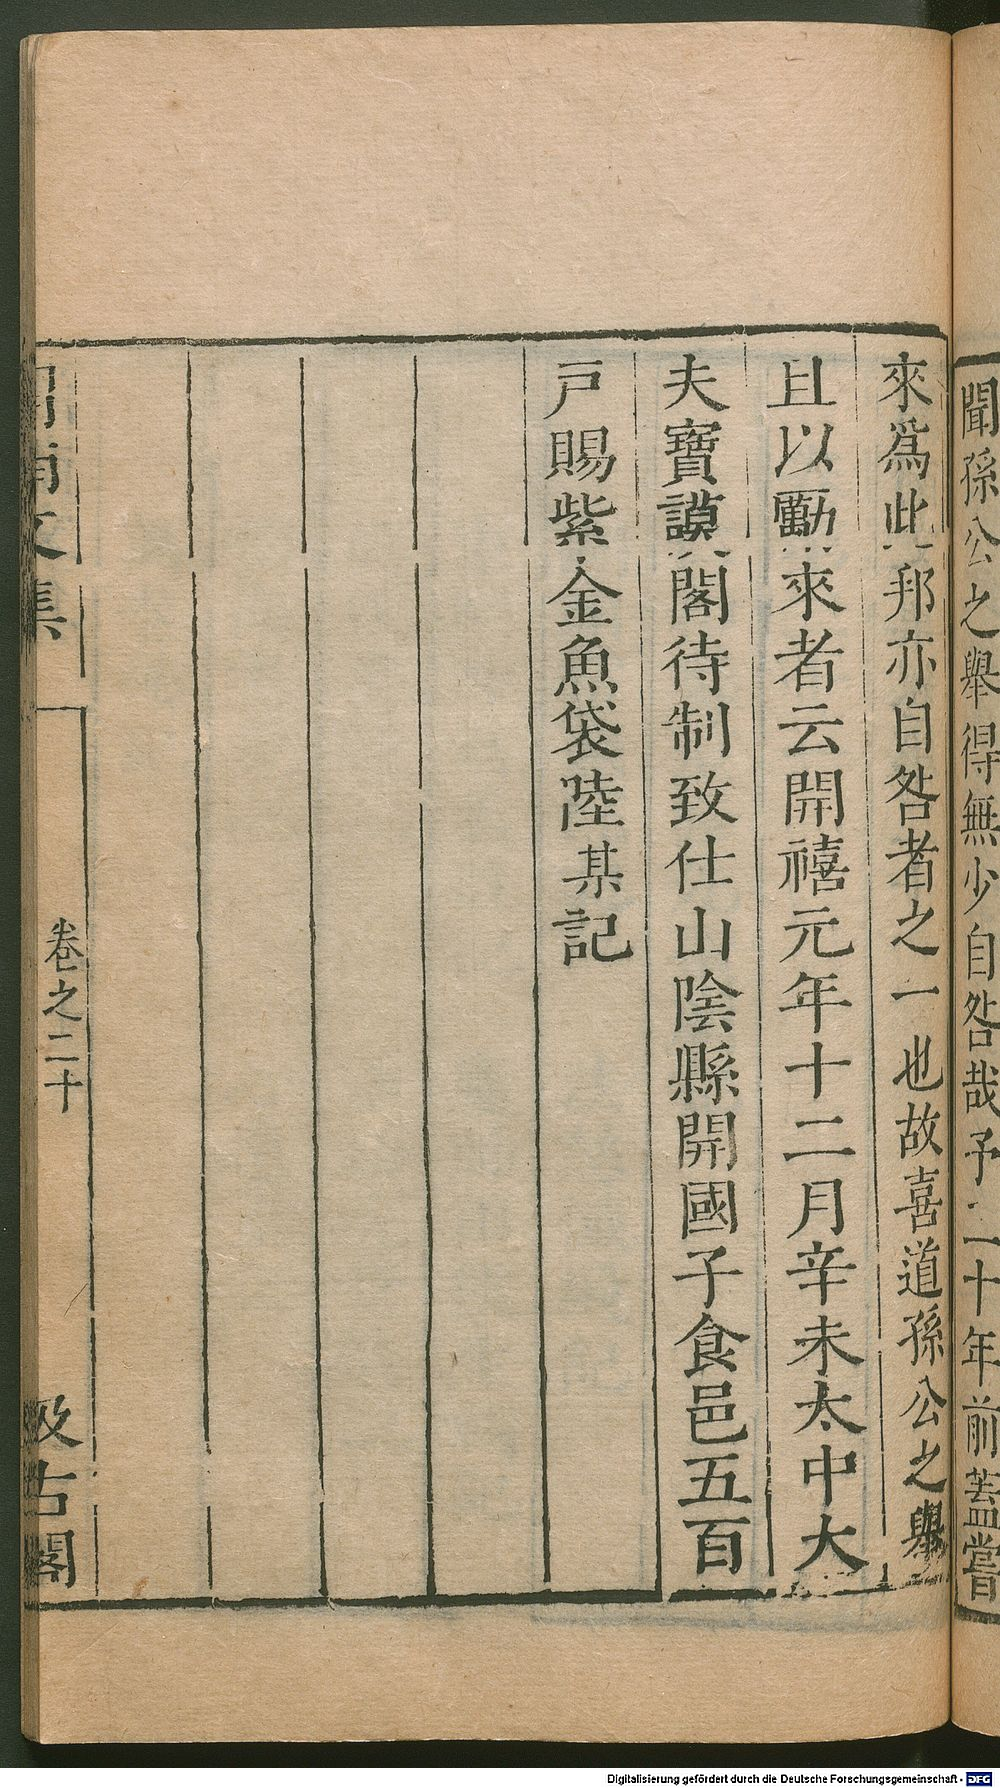 聞孫公之舉得無少自咎哉予二十年前蓋嘗
來爲此邦亦自咎者之一也故喜道孫公之舉
且以勵來者云開禧元年十二月辛未太中大
夫寶謨閣待制致仕山陰縣開國子食邑五百
戸賜紫金魚袋陸某記
渭南文集
卷之二十
汲古閣
Digitalisierung gefördert durch die Deutsche Forschungsgemeinschaft - DFG